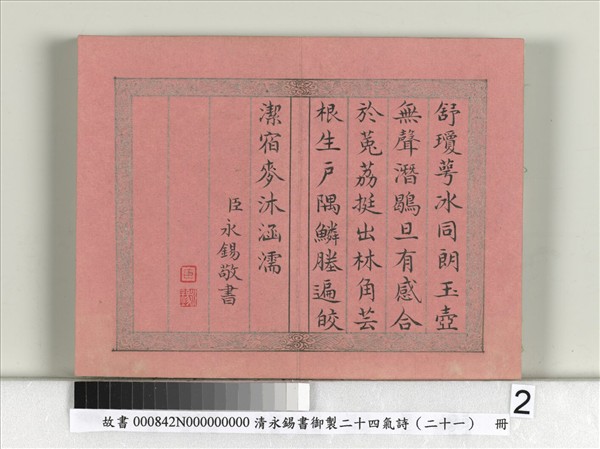 舒瓊萼冰同朗玉壺
無聲潛鶡旦有感合
於菟荔挺出林角芸
根生戶隅鱗塍遍皎
潔宿麥沐涵濡
臣永錫敬書
2
故書 000842N000000000 清永錫書御製二十四氣詩（二十一） 冊